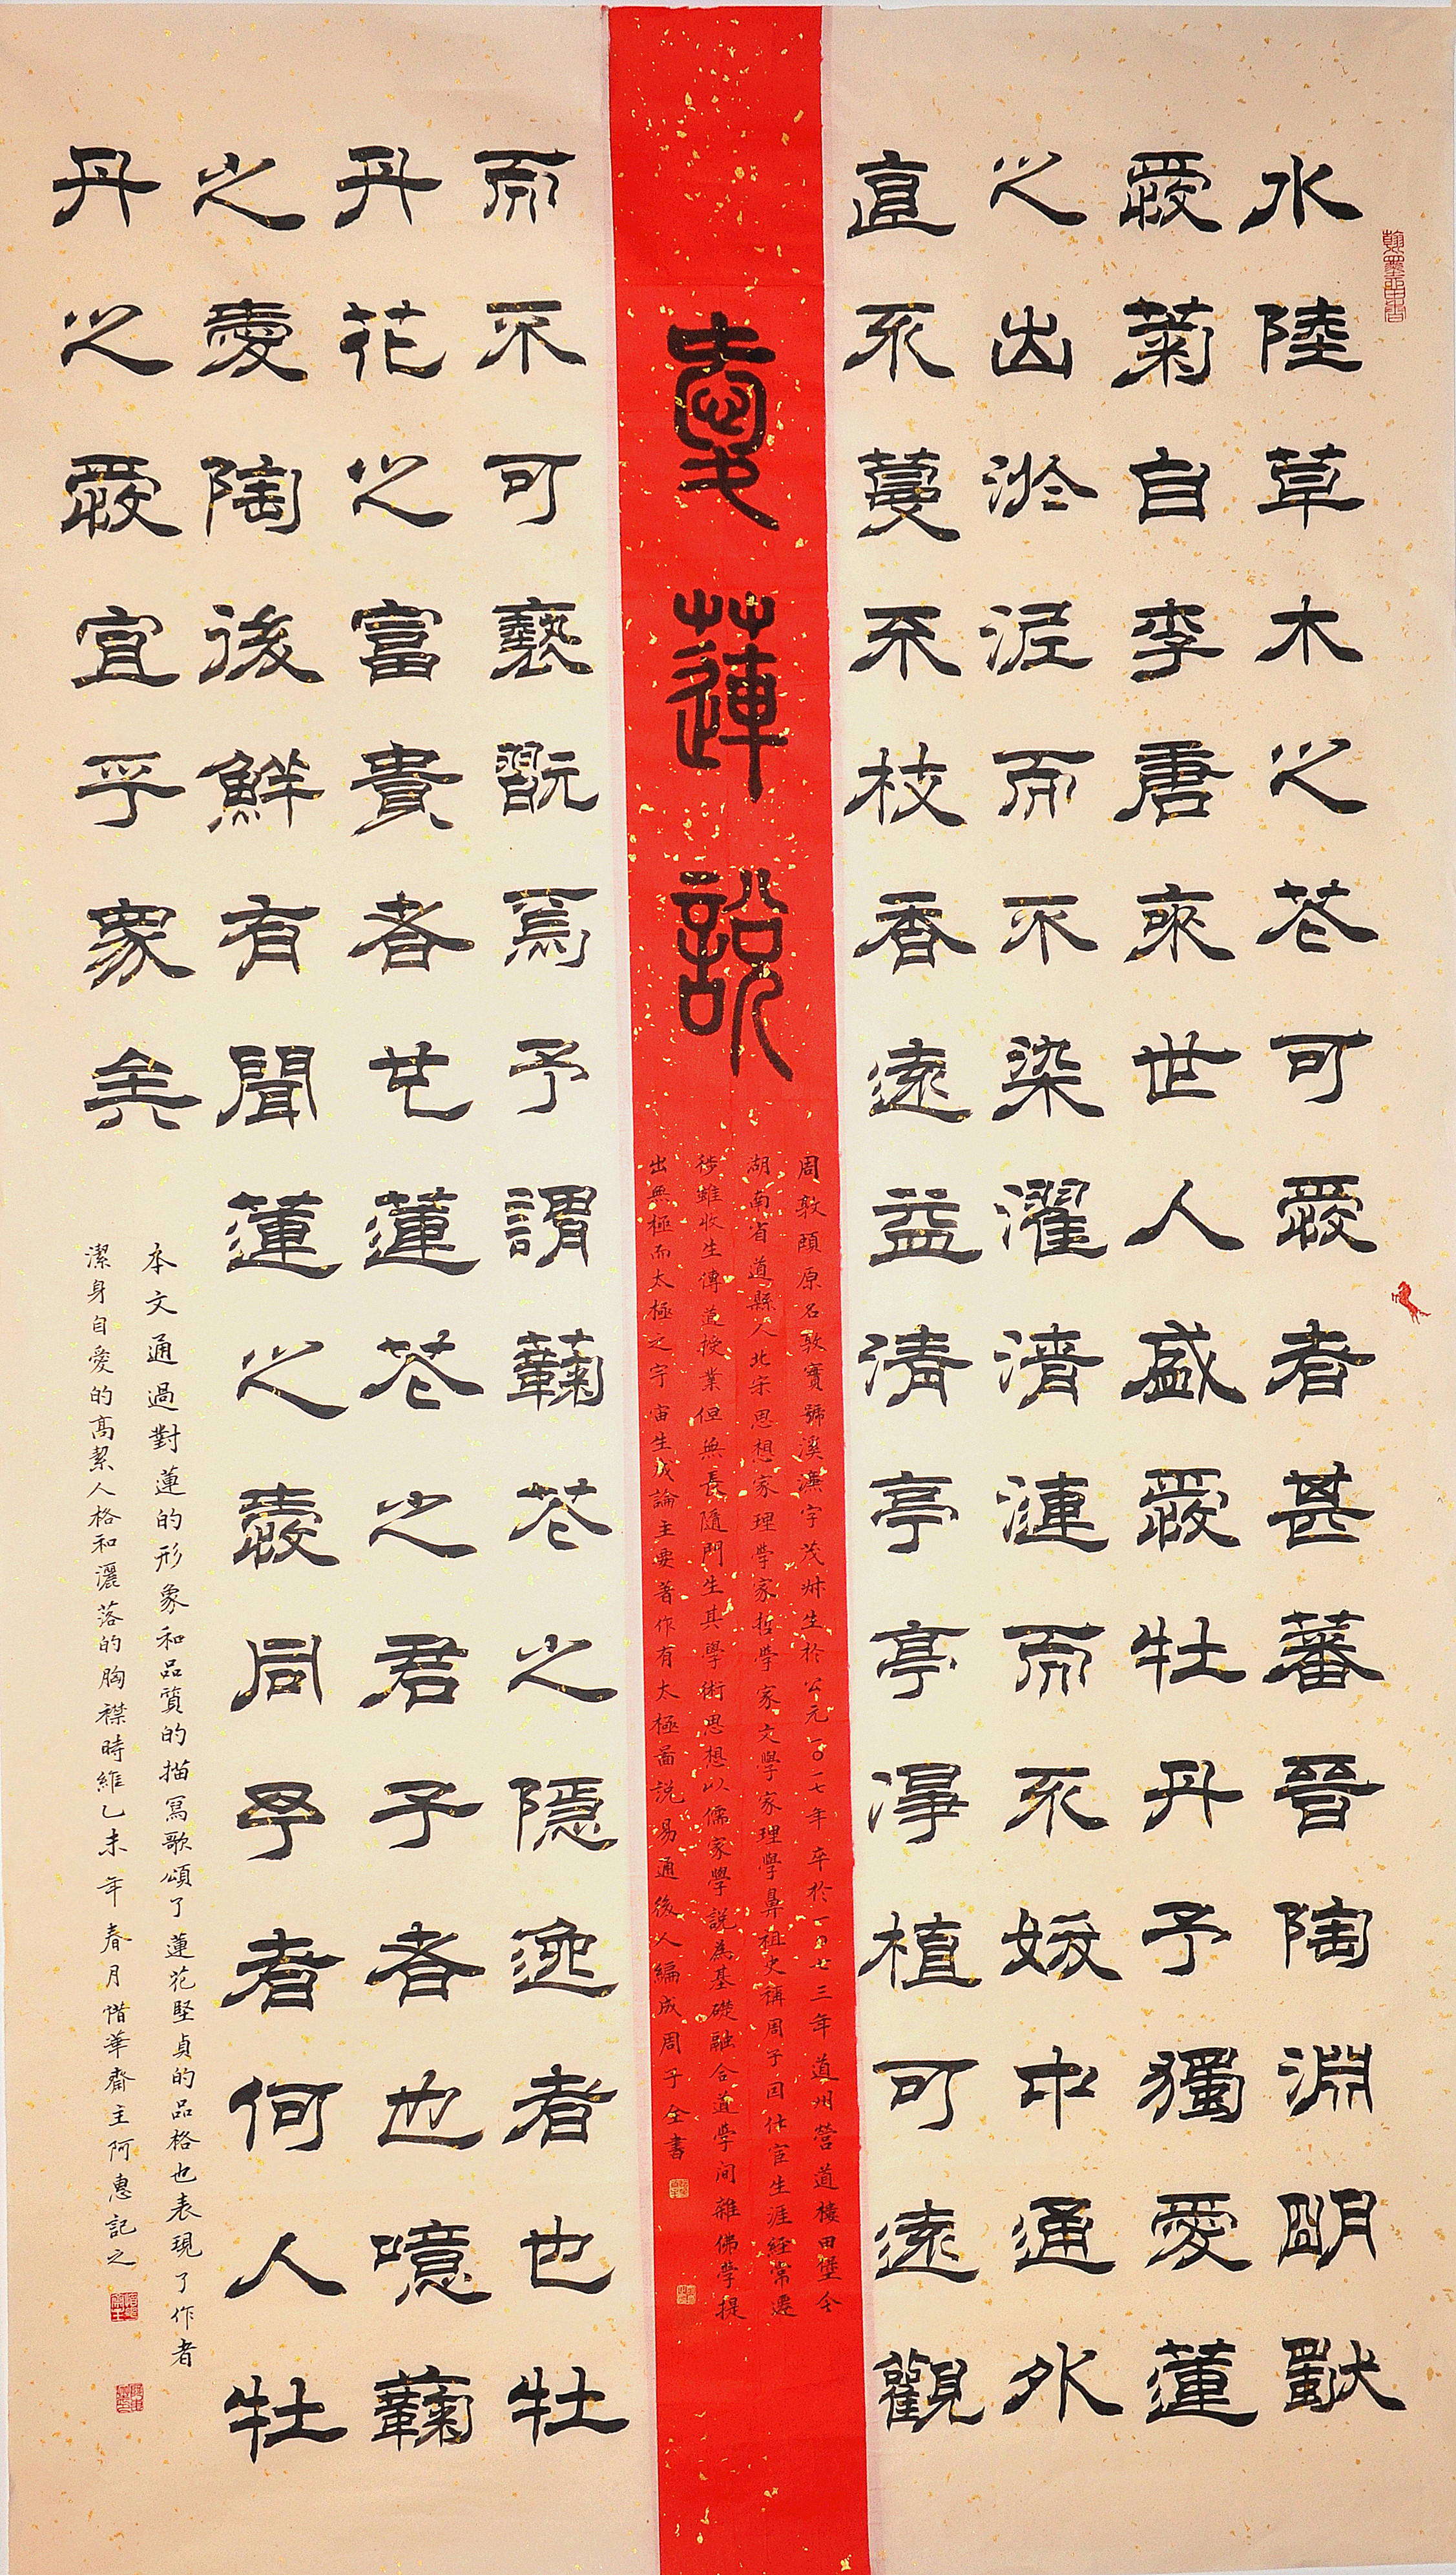 翰墨留香
水陸草木之花可愛者甚蕃晉陶淵明獨
愛菊自李唐來世人盛愛牡丹予獨愛蓮
之出淤泥而不染濯清漣而不妖中通外
直不蔓不枝香遠益清亭亭淨植可遠觀
愛蓮說
周敦頤原名敦實號溪濂字茂叔生於公元一〇一七年卒於一〇七三年道州營道樓田堡今
湖南省道縣人北宋思想家理學家哲學家文學家理學鼻祖史稱周子因仕宦生涯經常遷
徙雖收生傳道授業但無長隨門生其學術思想以儒家學說為基礎融合道學间雜佛學提
出無極而太極之宇宙生成論主要著作有太極圖說易通後人編成周子全書
而不可褻翫焉予謂蘜花之隱逸者也牡
丹花之富貴者也蓮花之君子者也噫蘜
之愛陶後鮮有聞蓮之愛同予者何人牡
丹之愛宜乎眾矣
本文通過對蓮的形象和品質的描寫歌頌了蓮花堅貞的品格也表現了作者
潔身自愛的高絜人格和灑落的胸襟時維乙未年春月惜華齋主阿惠記之